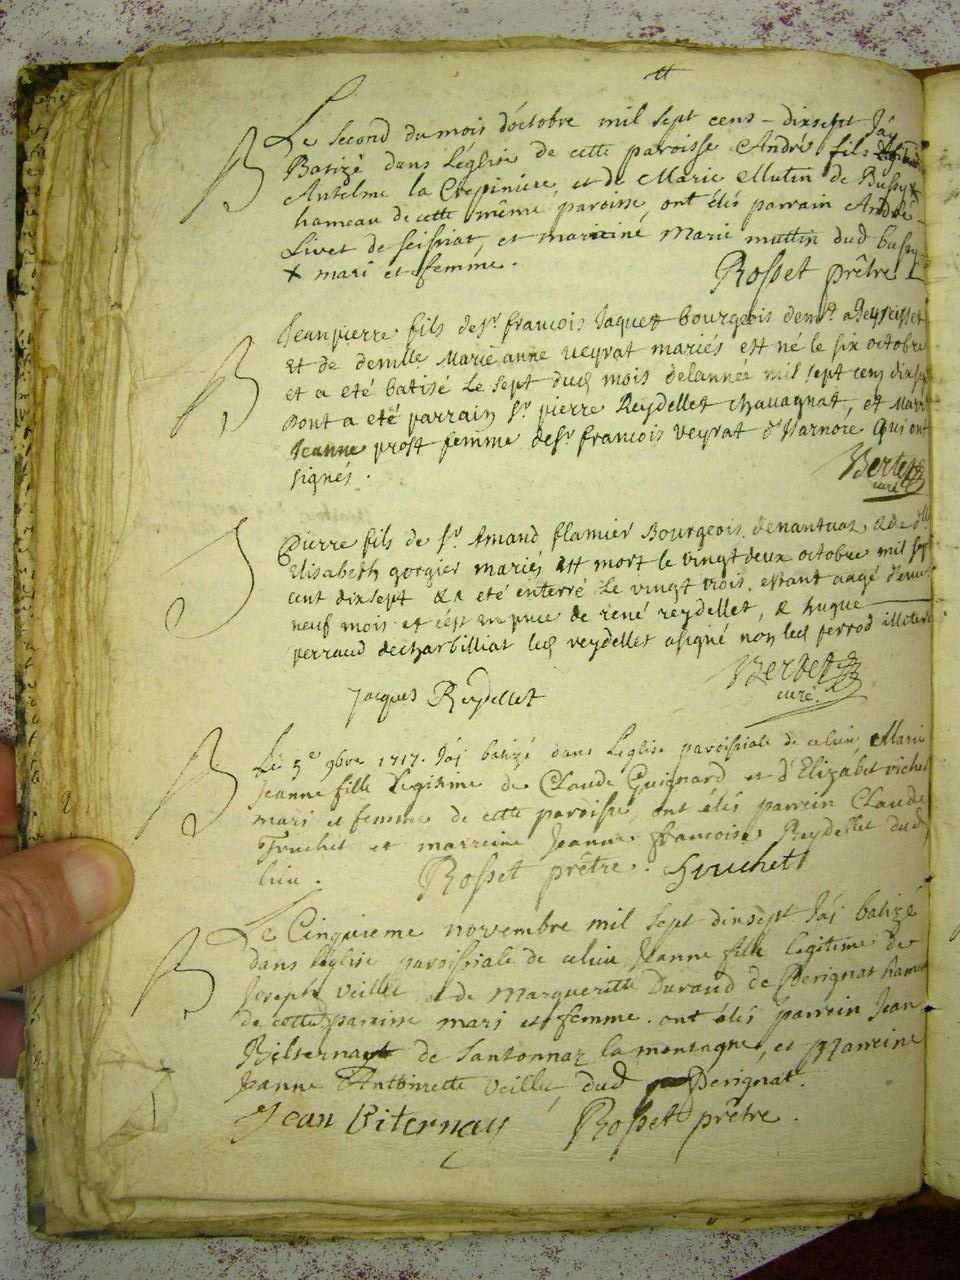 Le second du mois d'octobre mil sept cens - dixsept J'aj
B Batizé dans l'église de cette paroisse André fils
Anselme la Crepiniere, et de Marie Mutin de Bussy x
hameau de cette même paroisse, ont étés parrain André
Livet de seissiat, et mareine Marie muttin dud bussy
x mari et femme. Rosset prêtre
Jean pierre fils de sr. francois Jaquet bourgeois dem.t a
B Et de demlle Marie anne veyrat mariés est né le six octobre
et a eté batisé Le sept dud mois de lannee mil sept cens dixsept
Dont a eté parrain sr. pierre Reydellet chavagnat, et Marie
Jeanne prost femme de sr. francois veyrat d'Isarnore Qui ont
signés.
Bertet
curé
S Pierre fils de sr. Amand flamier Bourgeois de nantuas, & de dlle
Elisabeth gorgier mariés est mort le vingt deux octobre mil sept
cent dixsept & a eté enterré Le vingt trois, estant aagé d'envi.
neuf mois et c'est en pnce de rené reydellet, & hugue
perraud de charbilliat led reydellet a signé non led perrod illoteré
Jacques Reydellet Bertet
curé
B Le 5e 9bre 1717. J'aj batizé dans L'eglise paroissiale de ce lieu, Marie
Jeanne fille Legitime de Claude Guignard et d'Elizabet vichet
mari et femme de cette paroisse, ont étés parrein Claude
Truchet et marreine Jeanne francoise Reydellet dud
lieu. Rosset prêtre. Truchet
Le Cinquieme novembre mil sept dixsept J'aj batizé
B dans l'église paroissiale de ce lieu Jeanne fille legitime de
Joseph veillet et de Marguerette Durand de Perignat hameau
de cette paroisse mari et femme. ont étés parrein Jean
de santonnaz la montagne, et Marreine
Jeanne Anthoinette veillet, dud Perignat.
Jean Viternay Rosset prêtre.